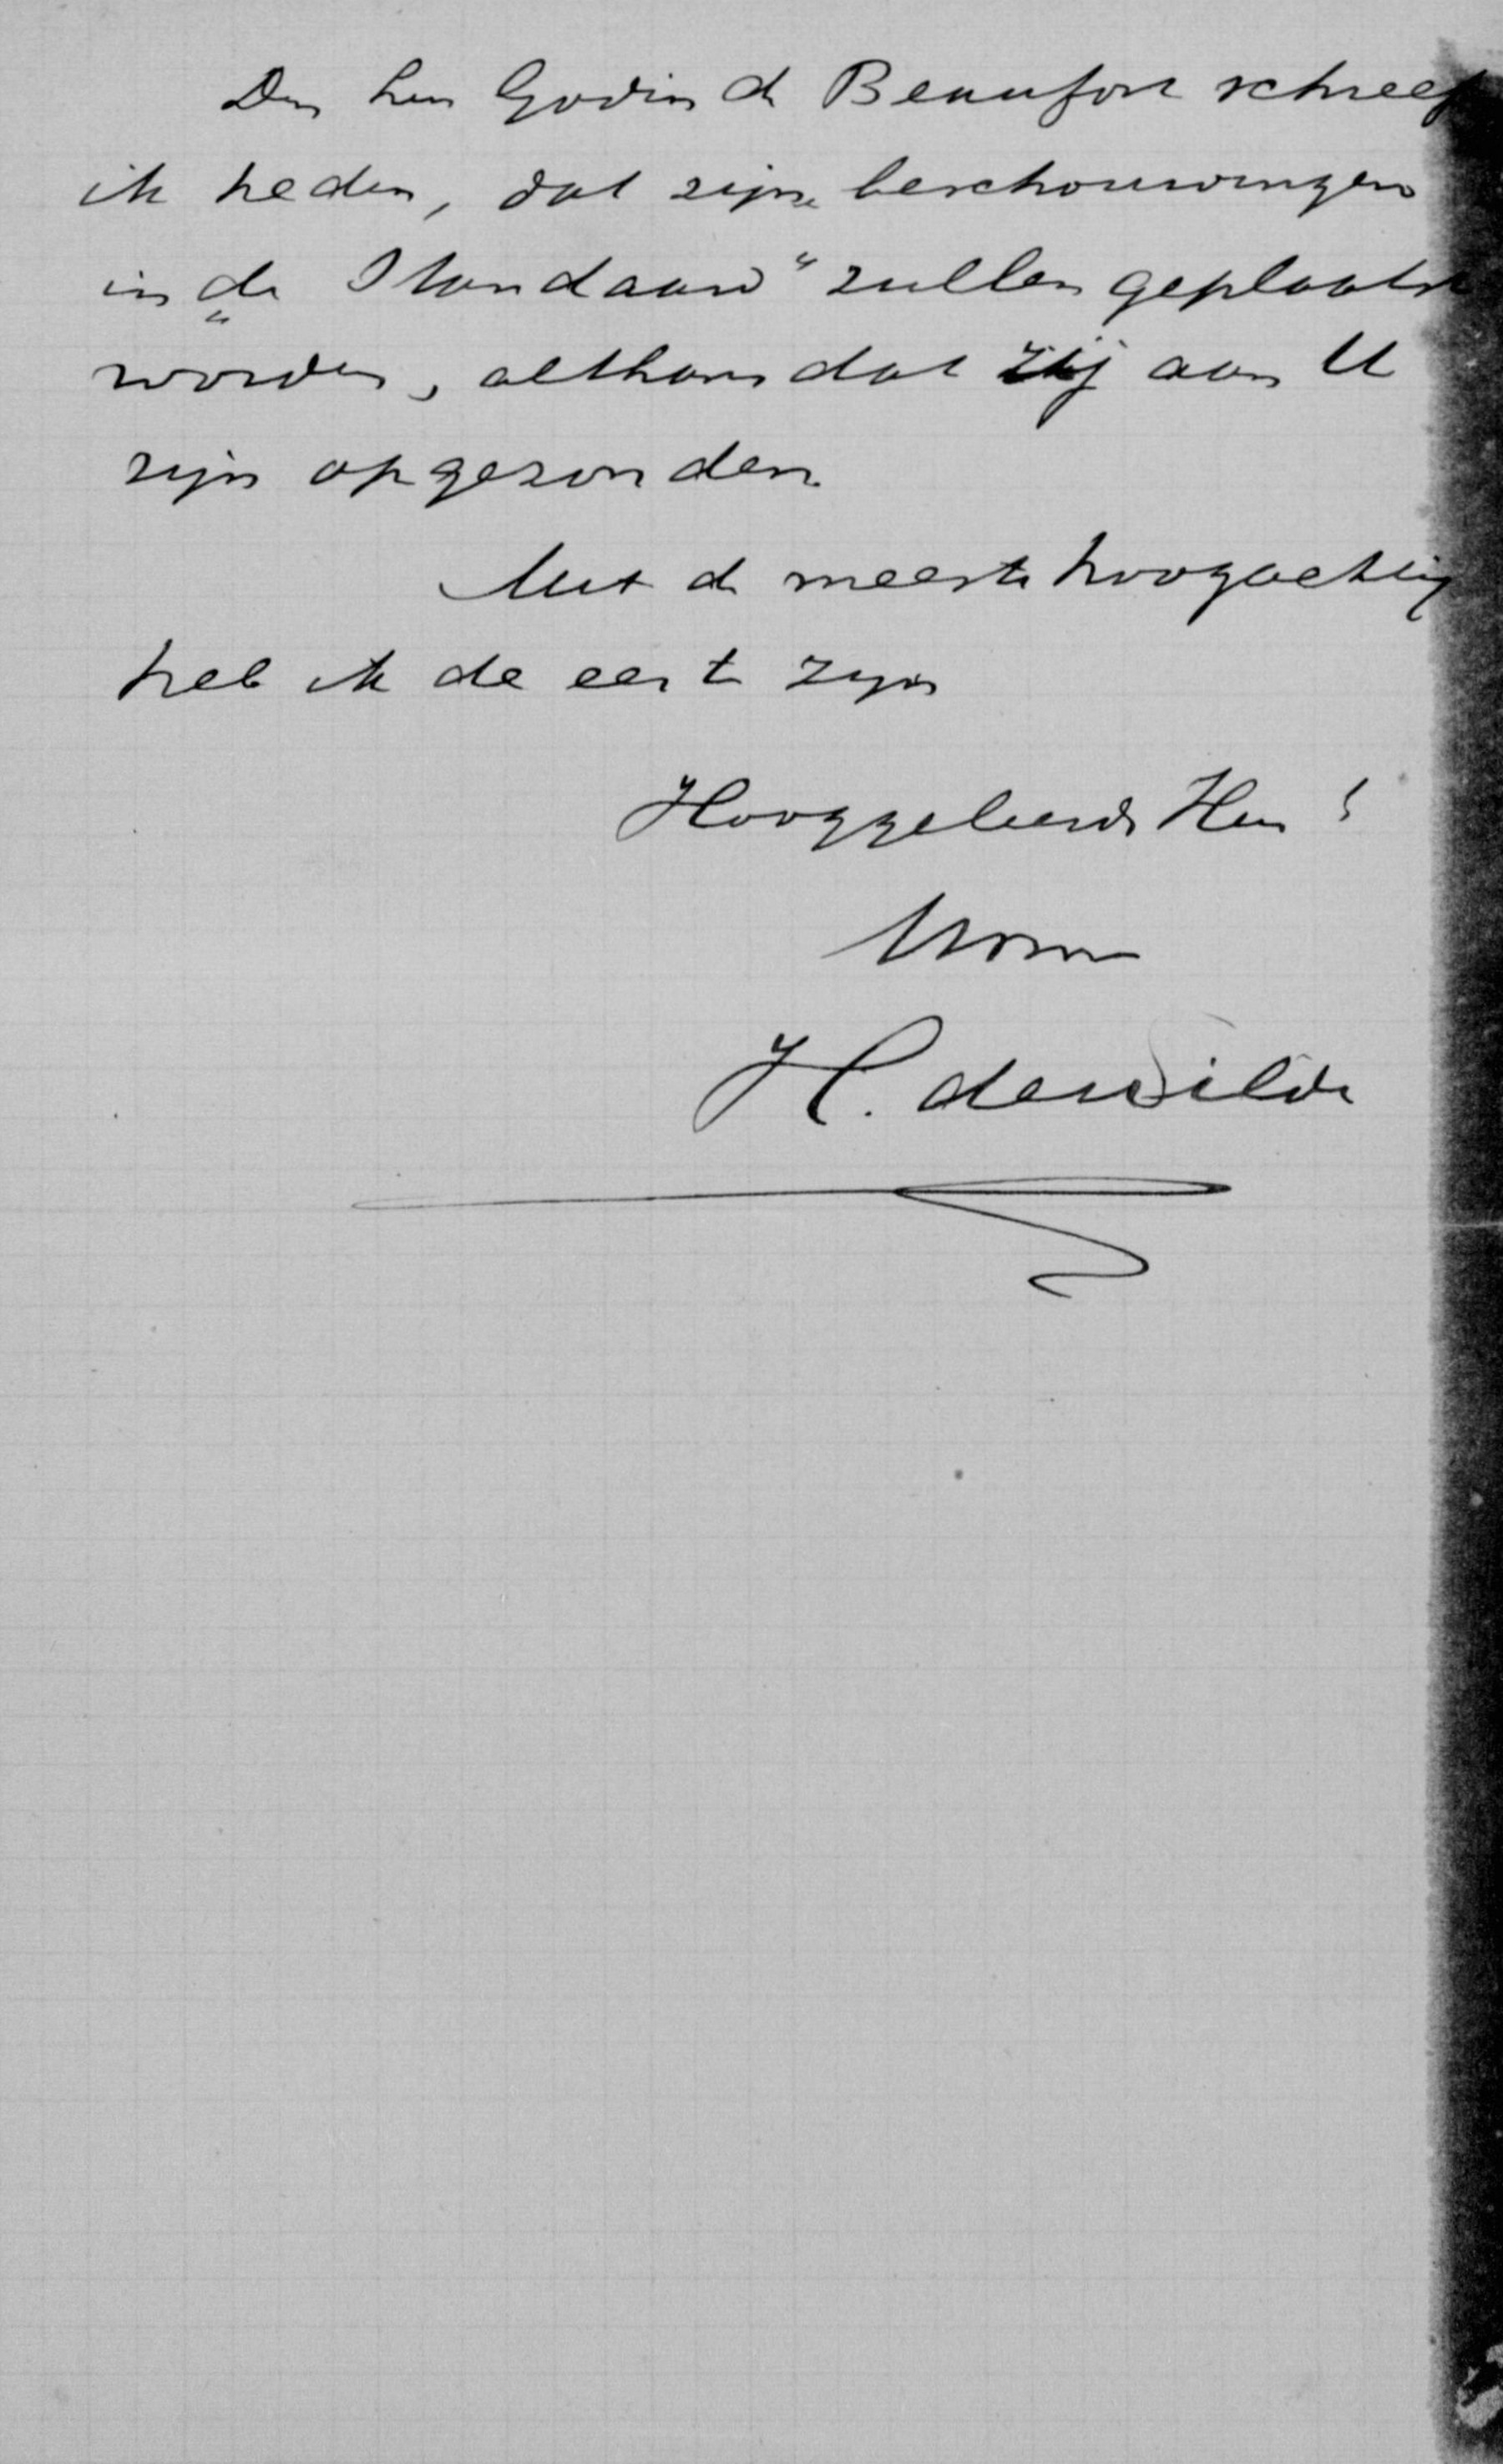 Den heer Godin de Beaufort schreef
ik heden, dat zijne beschouwingen
in „de Standaard" zullen geplaatst
worden, althans dat zij aan U
zijn opgezonden.
Met de meeste hoogachting
heb ik de eer te zijn
Hooggeleerde Heer!
H. de Wilde